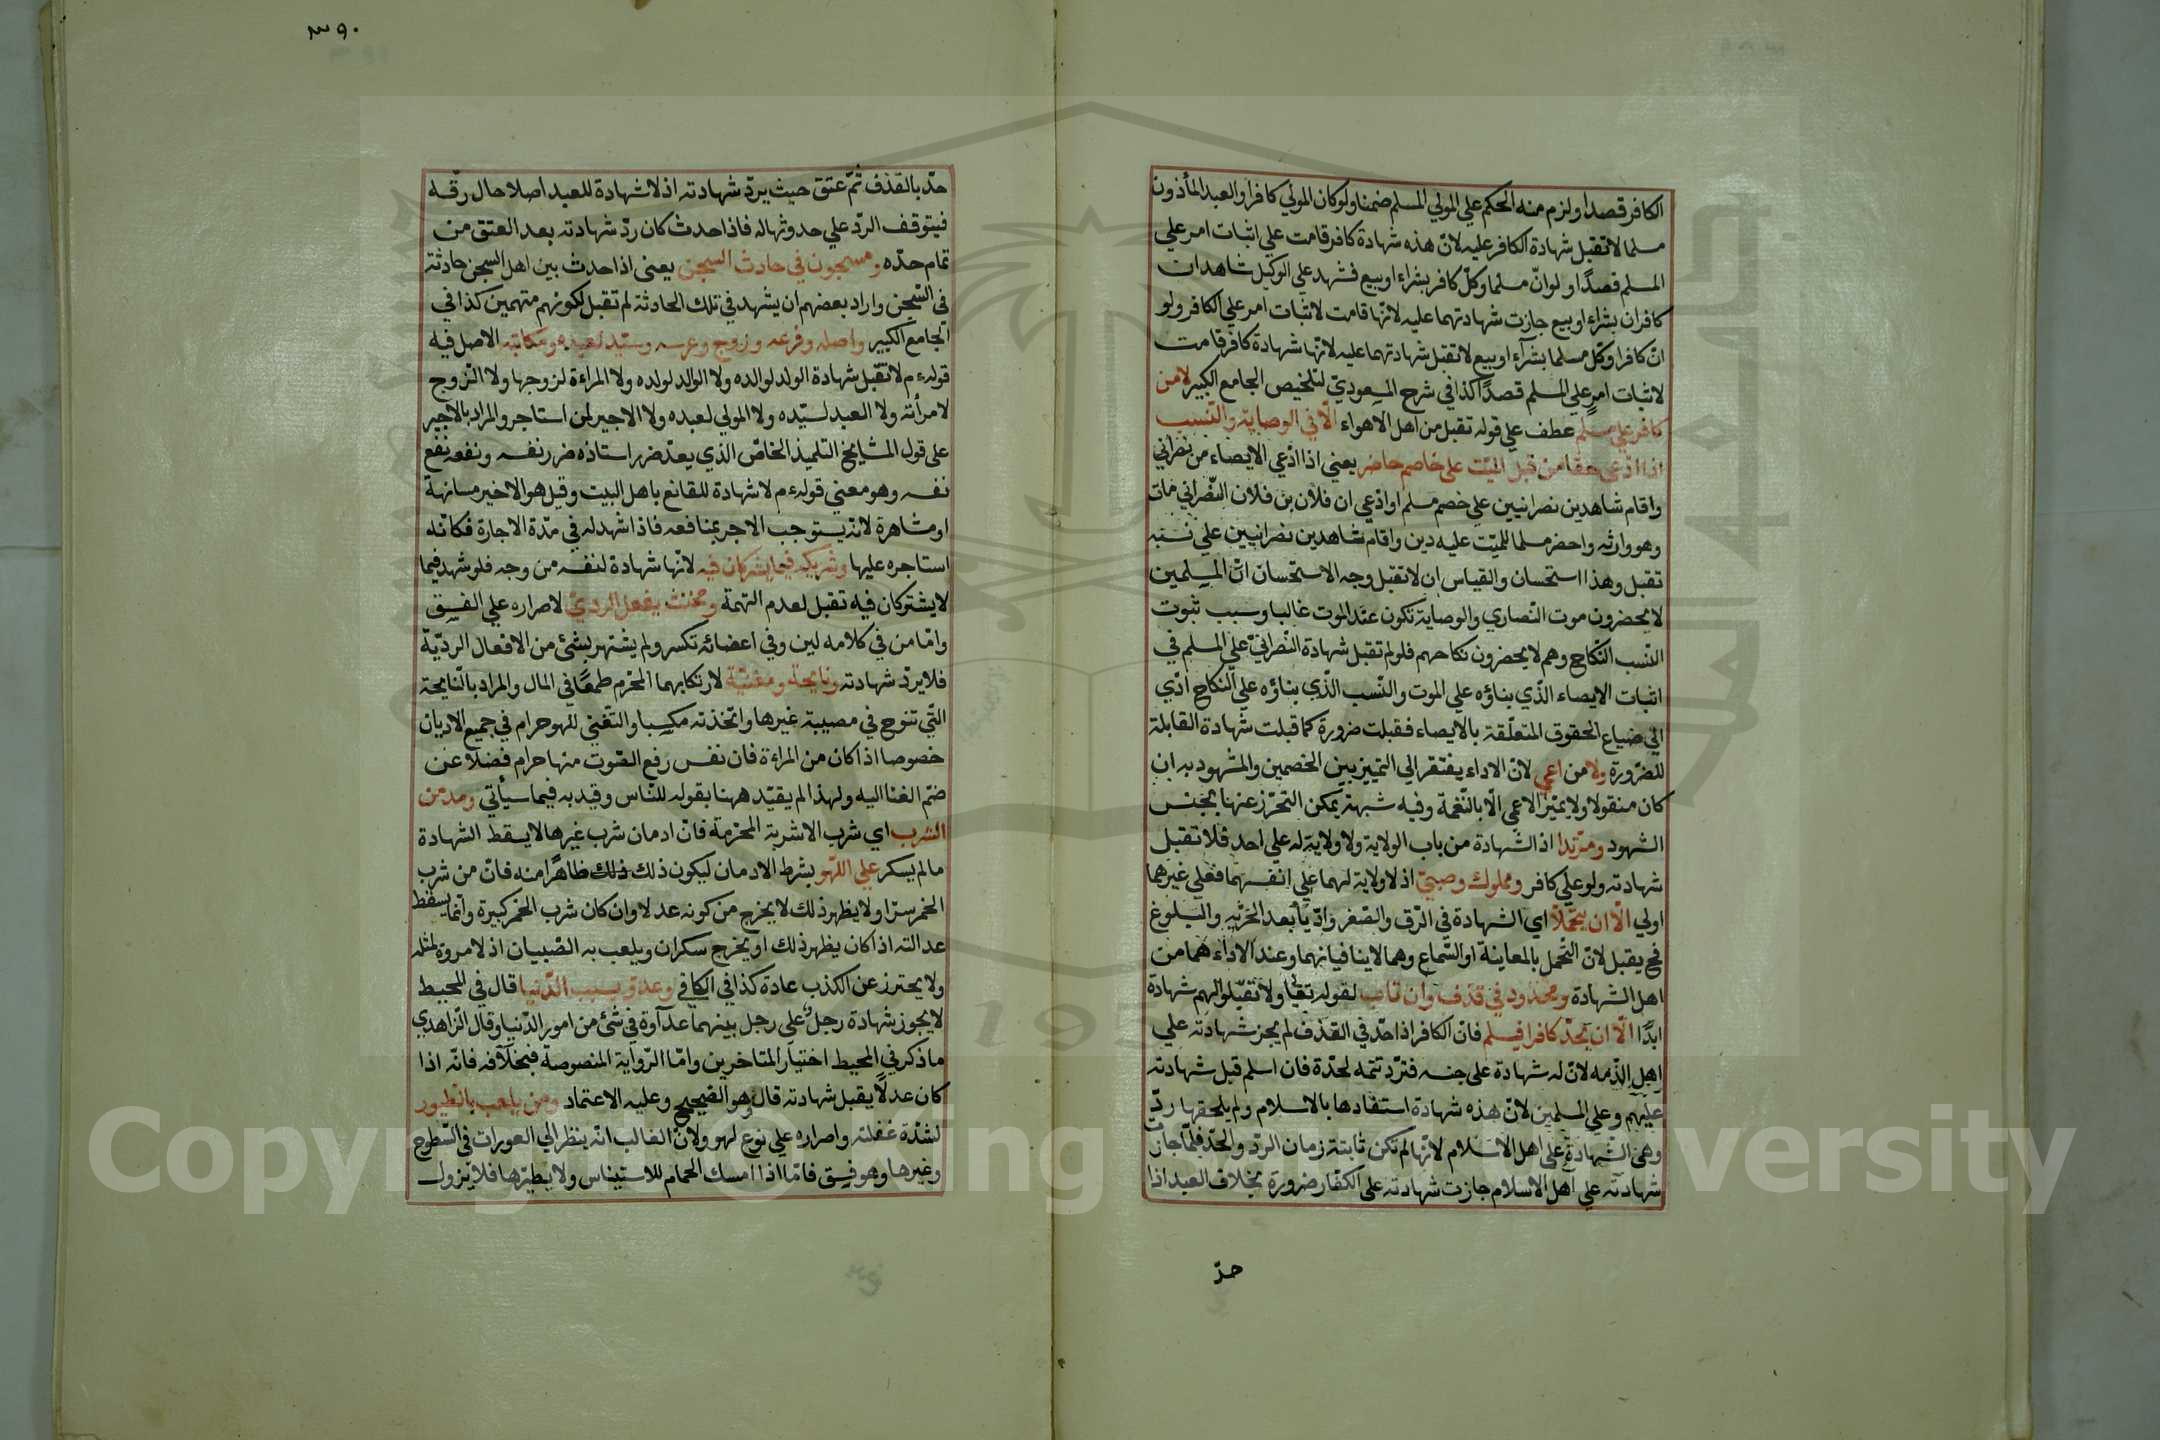 الكافر قصدا ولزم منه الحكم علي المولي المسلم ضمنا ولو كان المولي كافرا والعبد المأذون
مسلما لا تقبل شهادة الكافر عليه لانّ هذه شهادة كافر قامت علي اثبات امر علي
المسلم قصدًا ولو انّ مسلما وكّل كافر بشراء او بيع فشهد علي الوكيل شاهدان
كافران بشراء او بيع جازت شهادتهما عليه لانّها قامت لاثبات امر علي الكافر ولو
انّ كافرا وكّل مسلما بشرآء او بيع لا تقبل شهادتهما عليه لانّها شهادة كافر قامت
لاثبات امرٍ علي المسلم قصدًا كذا في شرح المسعوديّ لتلخيص الجامع الكبير لا من
كافر علي مسلم عطف علي قوله تقبل من اهل الاهواء الّا في الوصاية والنّسب
اذا ادّعي حقّا من قبل الميّت علي خاصم حاضر يعني اذا ادّعي الايصاء من نصراني
واقام شاهدين نصرانيين علي خصم مسلم او ادّعي ان فلان بن فلان النّصراني مات
وهو وارثه واحضر مسلما للميّت عليه دين واقام شاهدين نصرانيين علي نسبه
تقبل وهذا استحسان والقياس ان لا تقبل وجه الاستحسان انّ المسلمين
لا يحضرون موت النّصاري والوصاية تكون عند الموت غالبا وسبب ثبوت
النّسب النّكاح وهم لا يحضرون نكاحهم فلو لم تقبل شهادة النّصرانيّ علي المسلم في
اثبات الايصاء الّذي بناؤه علي الموت والنّسب الّذي بناؤه علي النّكاح ادّي
الي ضياع الحقوق المتعلّقة بالايصاء فقبلت ضرورة كما قبلت شهادة القابلة
للضّرورة ولا من اعمي لانّ الاداء يفتقر الي التمييز بين الخصمين والمشهود به ان
كان منقولا ولا يميّز الاعمي الّا بالنّغمة وفيه شبهة يمكن التحرّز عنها بجنس
الشهود ومرتدا اذ الشّهادة من باب الولاية ولا ولاية له علي احد فلا تقبل
شهادته ولو علي كافر ومملوك وصبيّ اذ لا ولاية لهما علي انفسهما فعلي غيرهما
اولي الّا ان يتحمّلا اي الشهادة في الرّق والصّغر وادّيا بعد الحرّيه والبلوغ
فح يقبل لانّ التّحمل بالمعاينة او السّماع وهما لا ينافيانهما وعند الاداء هما من
اهل الشّهادة ومحدود في قذف وان تاب لقوله تعالي ولا تقبلوا لهم شهادة
ابدًا الّا ان يحدّ كافرا فيسلم فانّ الكافر اذا حدّ في القذف لم يجز شهادته علي
اهل الذّمه لانّ له شهادة علي جنسه فتردّ تتمه لحدّة فان اسلم قبل شهادته
عليهم وعلي المسلمين لانّ هذه شهادة استفادها بالاسلام ولم يلحقها ردّ
وهي الشّهادة علي اهل الاسلام لانّها لم تكن ثابتة زمان الردّ والحدّ فلمّا جازت
شهادته علي اهل الاسلام جازت شهادته علي الكفّار ضرورة بخلاف العبد اذا
حدّ
٣٩٠
حدّ بالقذف ثمّ عتق حيث يردّ شهادته اذ لا شهادة للعبد اصلا حال رقّه
فيتوقف الردّ علي حدوثها له فاذا حدث كان ردّ شهادته بعد العتق من
تمام حدّه ومسجون في حادث السجن يعني اذا حدث بين اهل السجن حادثة
في السّجن واراد بعضهم ان يشهد في تلك الحادثة لم تقبل لكونهم متهمين كذا في
الجامع الكبير واصله وفرعه وزوج وعرسه وسيّد لعبده ومكاتبه الاصل فيه
قوله ء م لا تقبل شهادة الولد لوالده ولا الوالد لولده ولا المراءة لزوجها ولا الزّوج
لامرأته ولا العبد لسيّده ولا المولي لعبده ولا الاجير لمن استاجر والمراد بالاجير
علي قول المشايخ التلميذ الخاصّ الذي يعدّ ضرر استاذه ضرر نفسه ونفعه نفع
نفسه وهو معني قوله ء م لا شهادة للقانع باهل البيت وقيل هو الاخير مسانهة
او مشاهرة لانه يستوجب الاجر بمنافعه فاذا شهد له في مدّة الاجارة فكانّه
استاجره عليها وشريكه فيما يشتركان فيه لانّها شهادة لنفسه من وجه فلو شهد فيما
لا يشتركان فيه تقبل لعدم التهمة ومخنث يفعل الرديّ لاصراره علي الفسق
وامّا من في كلامه لين وفي اعضائه تكسر ولم يشتهر بشئ من الافعال الرديّة
فلا يردّ شهادته ونايحة ومغنّية لارتكابهما المحرّم طمعًا في المال والمراد بالنّايحة
الّتي تنوح في مصيبة غيرها واتّخذته مكسبا والتّغنّي للهو حرام في جميع الاديان
خصوصا اذا كان من المراءة فان نفس رفع الصّوت منها حرام فضلا عن
ضمّ الغنا اليه ولهذا لم يقيّد ههنا بقوله للنّاس وقيد به فيما سيأتي ومدمن
الشرب اي شرب الاشربة المحرّمة فانّ ادمان شرب غيرها لا يسقط الشهادة
ما لم يسكر علي اللّهو بشرط الادمان ليكون ذلك ذلك ظاهرًا منه فانّ من شرب
الخمر سرّا ولا يظهر ذلك لا يخرج من كونه عدلا وان كان شرب الخمر كبيرة وانّما يسقط
عدالته اذا كان يظهر ذلك او يخرج سكران ويلعب به الصّبيان اذ لا مروة لمثله
ولا يحترز عن الكذب عادة كذا في الكافي وعدوّ بسبب الدّنيا قال في المحيط
لا يجوز شهادة رجل علي رجل بينهما عدآوة في شئ من امور الدّنيا وقال الزاهدي
ما ذكر في المحيط اختيار المتاخرين وامّا الرّواية المنصوصة فبخلافه فانّه اذا
كان عدلًا يقبل شهادته قال وهو الصّحيح وعليه الاعتماد ومن يلعب بالطيور
لشدّة غفلته واصراره علي نوع لهو ولانّ الغالب انّه ينظر الي العورات في السّطوح
وغيرها وهو فسق فامّا اذا امسك الحمام للاستيناس ولا يطيّرها فلا يزول